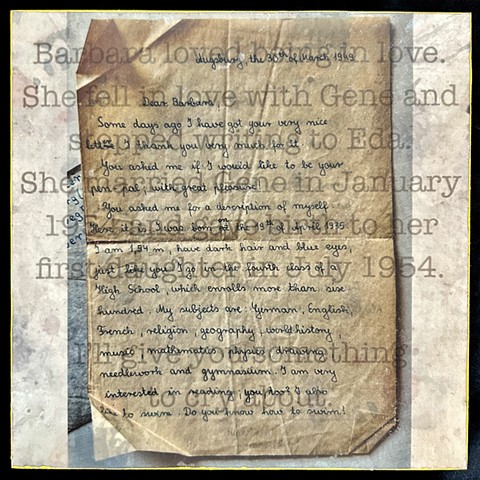 Barbara loved being in love.
She fell in love with Gene and
stopped writing to Eda.
She married Gene in January
and gave birth to her
first in July 1954.
I'll give you something
to cry about.
Augsburg, the 30th of March 1949
Dear Barbara,
Some days ago I have got your very nice
letter. I thank you very much for it.
You asked me if I would like to be your
pen-pal, with great pleasure.
You asked me for a description of myself.
Here it is. I was born on the 19th of April 1935
I am 1,54 m, have dark hair and blue eyes
just like you. I go in the fourth class of a
High School, which enrolls more than sixe
hundred. My subjects are: German, English,
French, religion, geography, world history,
music, mathematics, physics, drawing,
needlework and gymnasium. I am very
interested in reading, you too? I also
like to swim. Do you know how to swim?